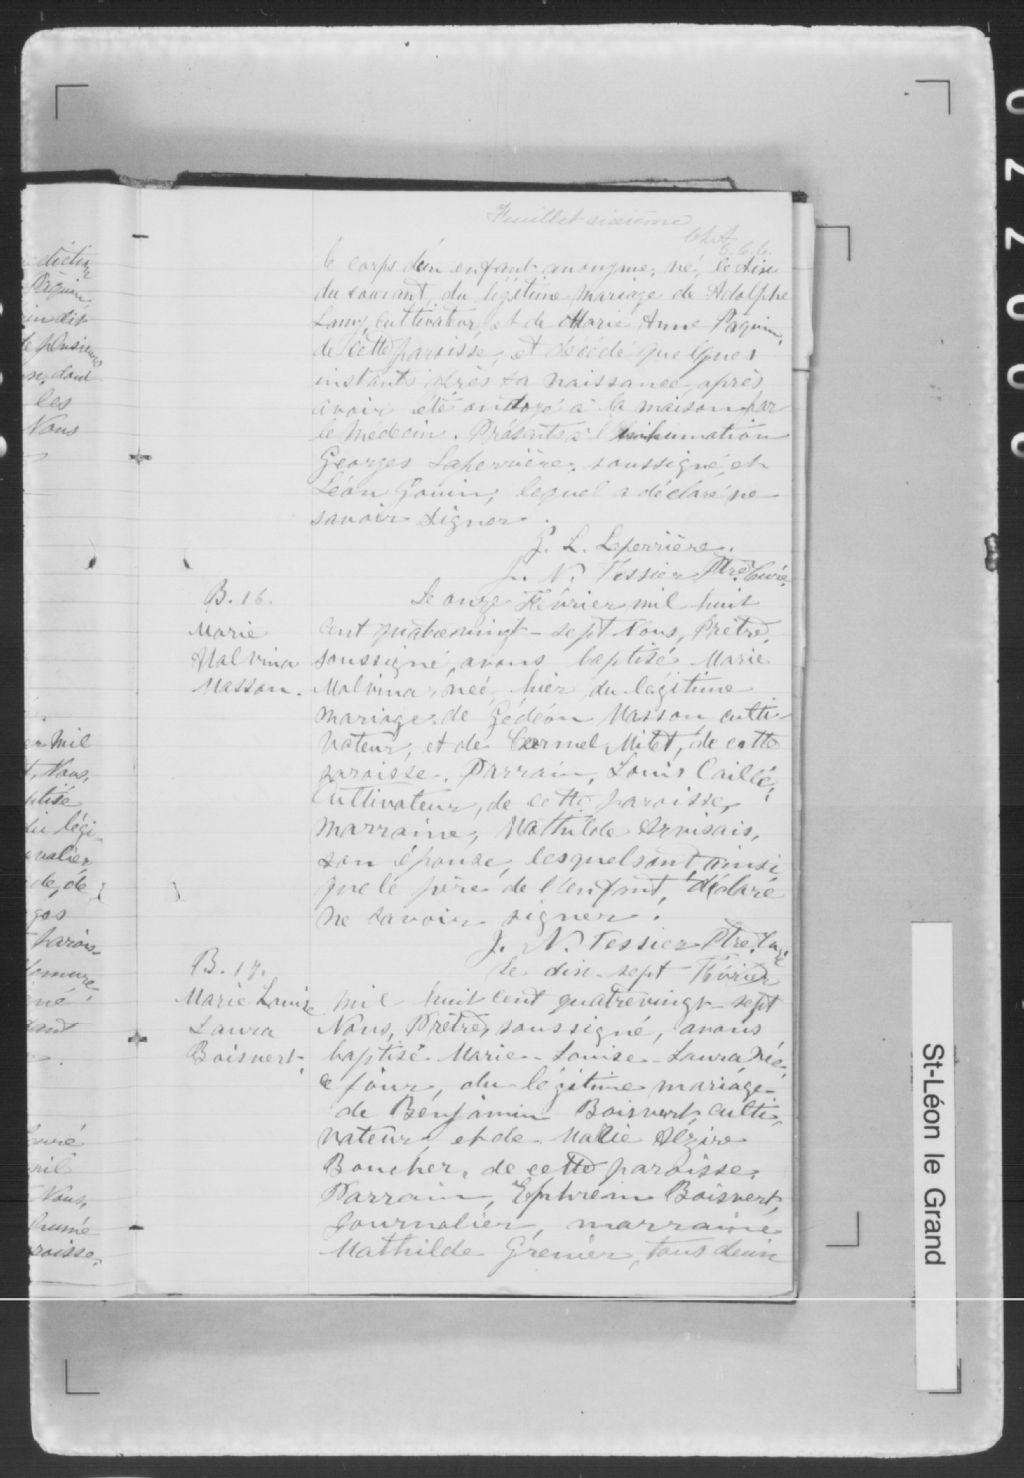 Feuillet sixième
le corps d'un enfant anonyme, né, le dix
du courant, du légitime mariage de Adolphe
Lamy, cultivateur, et de Marie Anne Paquin,
de cette paroisse, et décédé quelques
instants après sa naissance, après
avoir été ondoyé à la maison par
le Médecin. Présents à l'inhumation
Georges Laferrière, soussigné, et
Léon Gouin, lequel a déclaré ne
savoir signer.
G. L. Leferrière.
J. N. Tessier Ptre Curé
B. 16.
Marie
Malvina
Masson.
Le onze Février mil huit
cent quatrevingt-sept Nous, Prêtre,
soussigné, avons baptisé Marie
Malvina, née, hier, du légitime
mariage de Gédéon Masson, culti-
vateur, et de Carmel Milet, de cette
paroisse. Parrain, Louis Caillé,
Cultivateur, de cette paroisse,
marraine, Mathilde Arvisais,
son épouse, lesquels ont, ainsi
que le père de l'enfant, déclaré
ne savoir signer.
J. N. Tessier Ptre. Curé
B. 17.
Marie Louise
Laura
Boisvert.
Le dix-sept Février
mil huit cent quatrevingt-sept
Nous, Prêtre, soussigné, avons
baptisé Marie-Louise-Laura née,
ce jour, du légitime mariage
de Benjamin Boisvert, culti-
vateur, et de Marie Alzire
Boucher, de cette paroisse,
Parrain, Ephrem Boisvert,
Journalier, marraine
Mathilde Grenier, tous deux
St-Léon le Grand